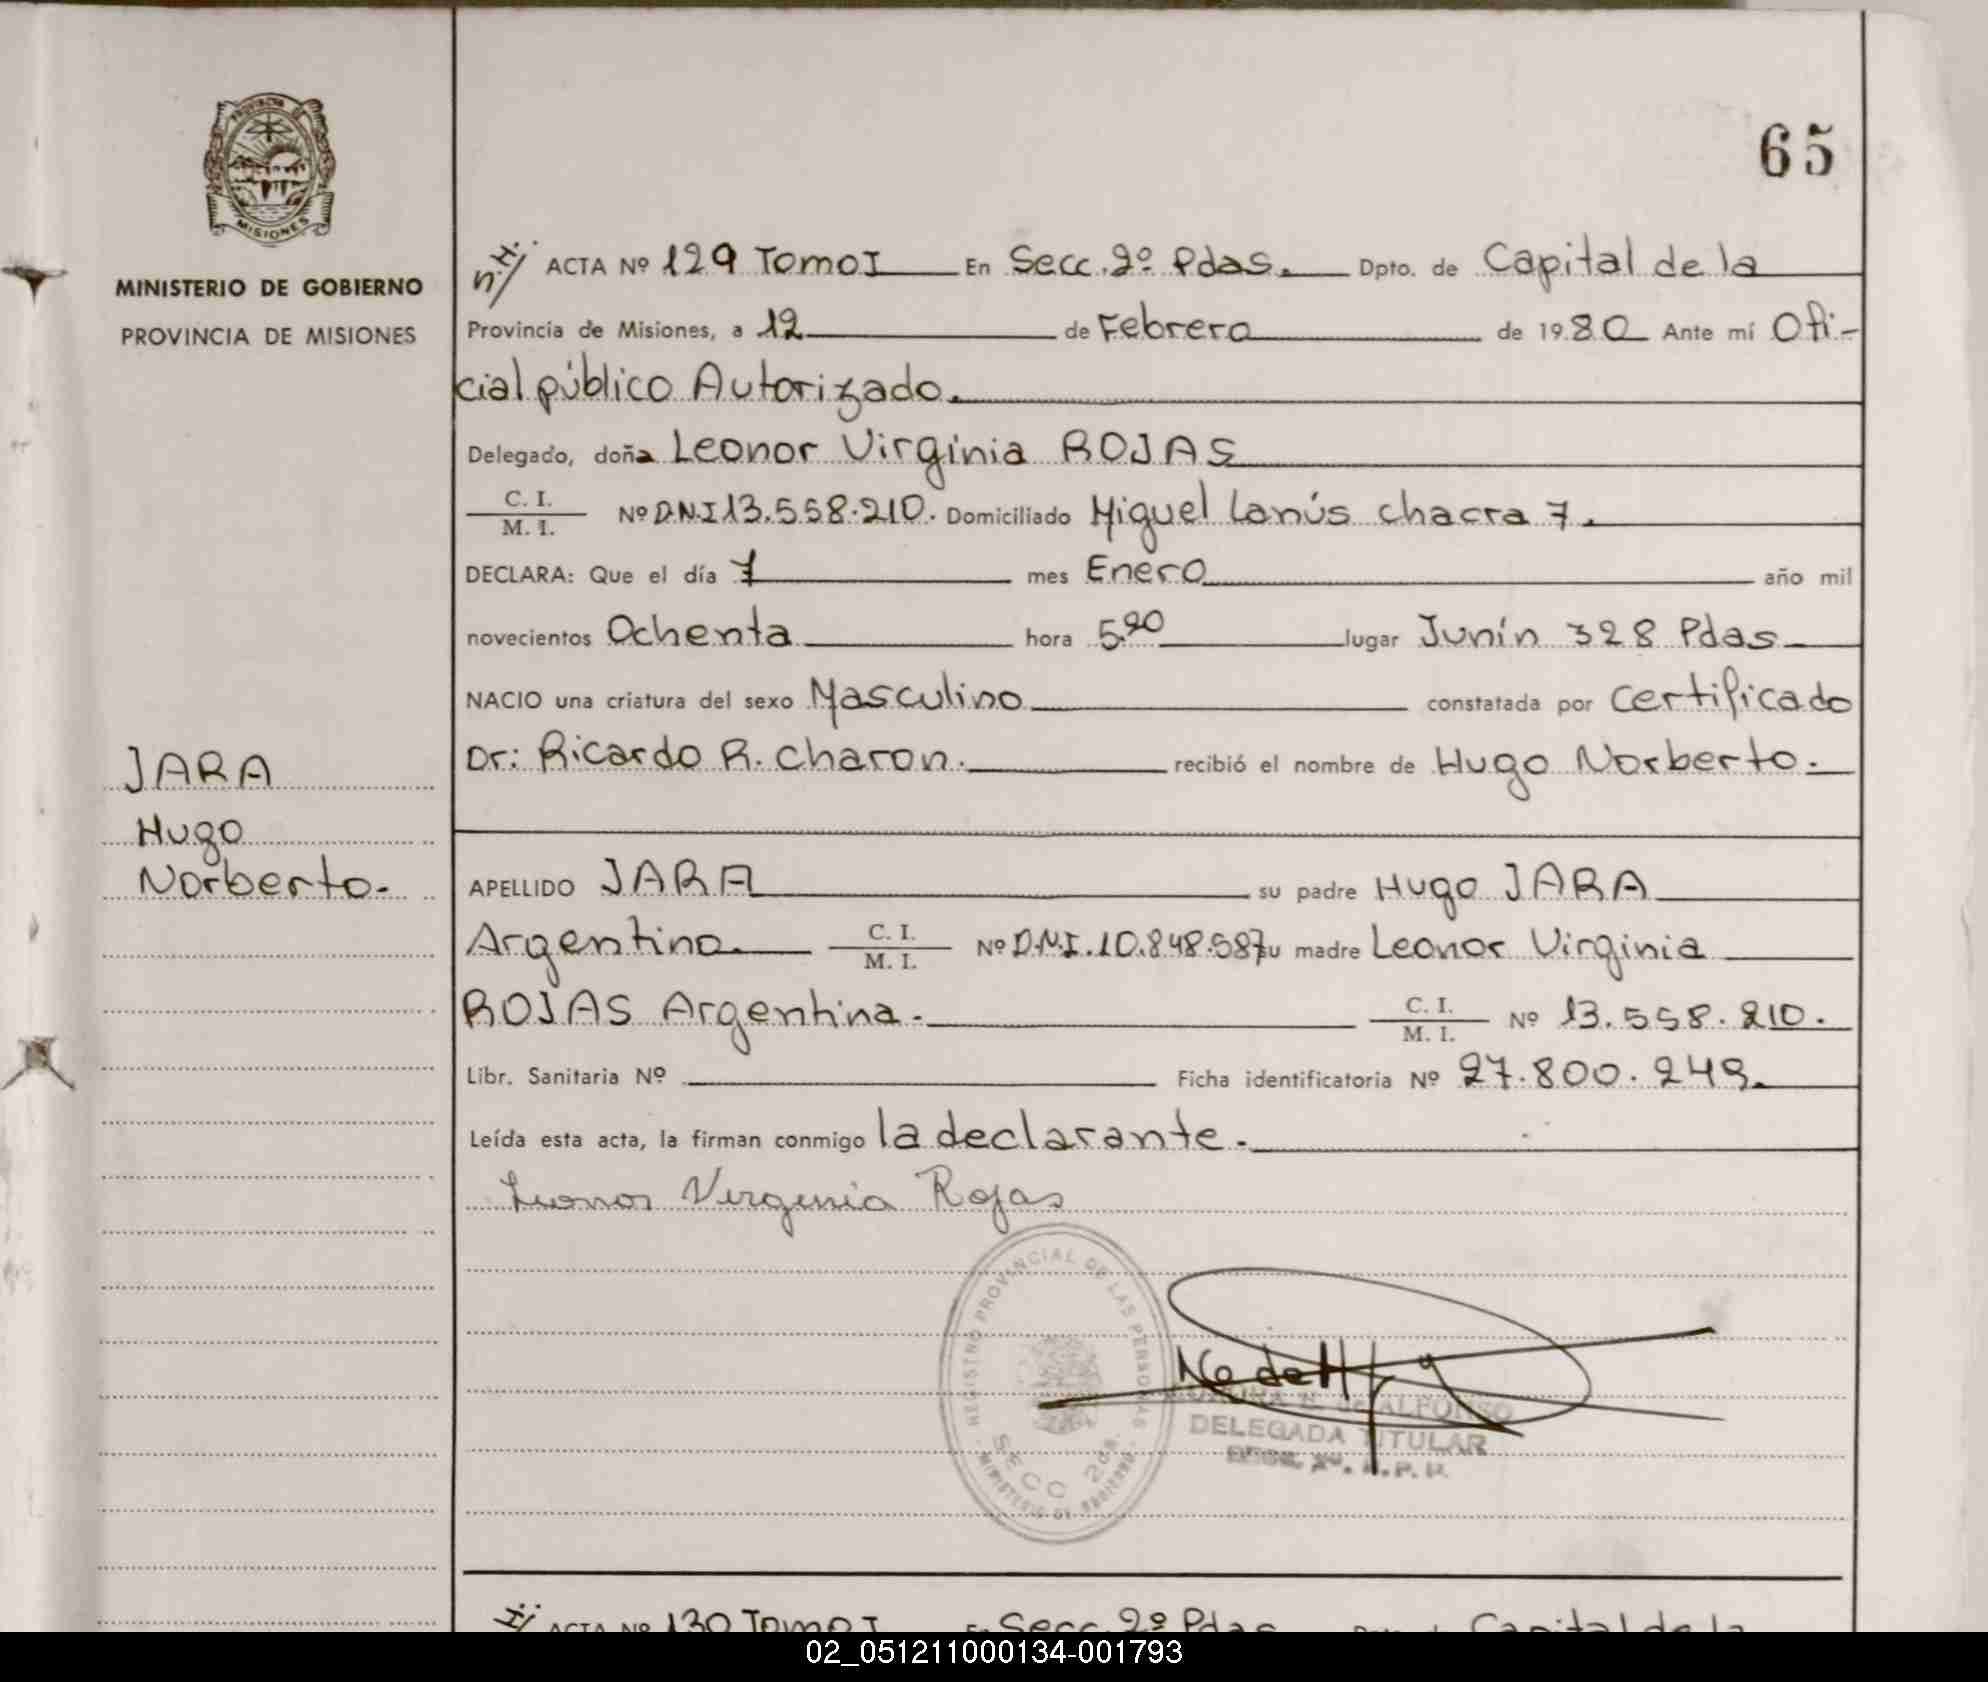 PROVINCIA DE
MISIONES
MINISTERIO DE GOBIERNO
PROVINCIA DE MISIONES
65
ACTA Nº 129 Tomo I En Secc. 2º Pdas. Dpto. de Capital de la
Provincia de Misiones, a 12 de Febrero de 1980 Ante mí Ofi-
cial público Autorizado.
Delegado, doña Leonor Virginia ROJAS
C. I.
M. I. Nº D.N.I 13.558.210. Domiciliado Miguel Lanús chacra 7.
DECLARA: Que el día 7 mes Enero año mil
novecientos Ochenta hora 5.20 lugar Junín 328 Pdas
NACIO una criatura del sexo Masculino constatada por Certificado
Dr: Ricardo R. Charon. recibió el nombre de Hugo Norberto.
JARA
Hugo
Norberto.
APELLIDO JARA su padre Hugo JARA
Argentino. C. I.
M. I. Nº D.N.I. 10.848.587 su madre Leonor Virginia
ROJAS Argentina. C. I.
M. I. Nº 13.558.210.
Libr. Sanitaria Nº Ficha identificatoria Nº 27.800.249.
Leída esta acta, la firman conmigo la declarante.
Leonor Virginia Rojas
REGISTRO PROVINCIAL DE LAS PERSONAS
SECC 2da.
MINISTERIO DE GOBIERNO
de ALFONSO
DELEGADA TITULAR
ACTA Nº 130 Tomo I En Secc. 2º Pdas Capital de la
02_051211000134-001793